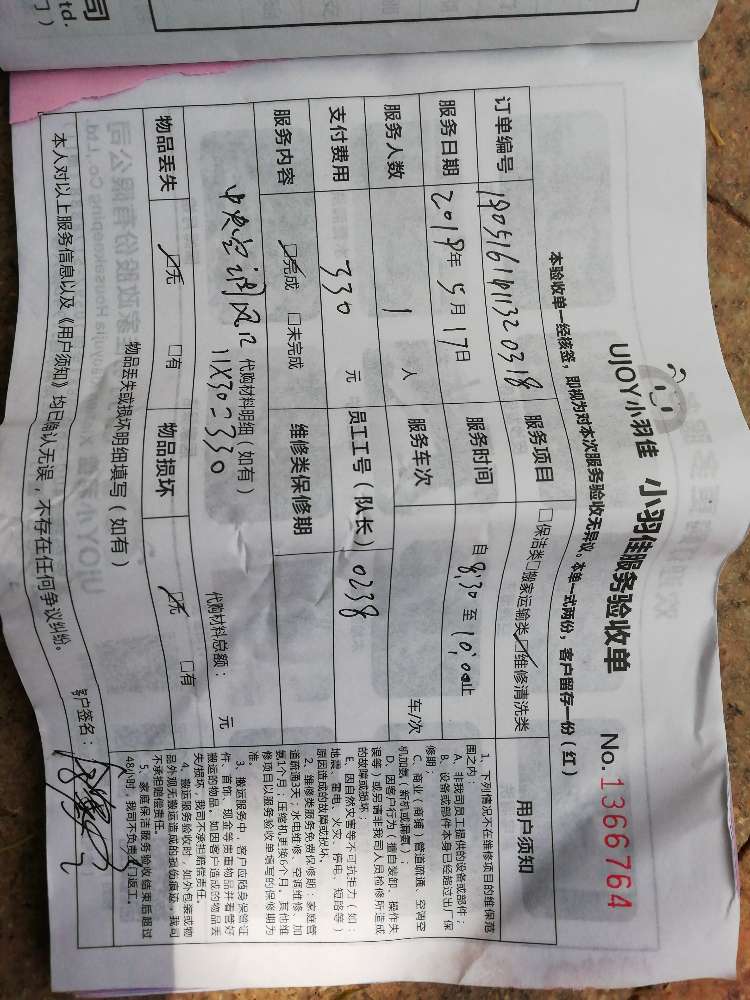 UJOY小羽佳 小羽佳服务验收单 No.1366764
本验收单一经核签，即视为对本次服务验收无异议。本单一式两份，客户留存一份（红）
订单编号 服务项目 □保洁类□搬家运输类☑维修清洗类
服务日期 2019年5月17日 服务时间 自8:30至10:00止
服务人数 1 人 服务车次 车/次
支付费用 330 元 员工工号（队长） 0238
服务内容 ☑完成 □未完成 维修类保修期
中央空调风口 代购材料明细（如有）
11X30=330
代购材料总额： 元
物品丢失 ☑无 □有 物品损坏 ☑无 □有
物品丢失或损坏明细填写（如有）
本人对以上服务信息以及《用户须知》均已确认无误，不存在任何争议纠纷。
客户签名：
用户须知
1、下列情况不在维修项目的维保范
围之内：
A、非我司员工提供的设备或部件；
B、设备或部件本身已经超过出厂保
修期；
C、商业（商铺）管道疏通、空调空
机加氨、新机或漏氨）；
D、因客户行为（擅自装卸、操作失
误等）或另请非我司人员检修所造成
的故障或损坏；
E、因自然灾害等不可抗拒力（如：
地震、雷电、火灾、停电、短路等）
原因造成的故障或损坏。
2、维修类服务免费保修期：家庭管
道疏通3天；水电维修、空调维修、加
氨1个月；压缩机更换6个月，其他维
修项目以服务验收单填写的保修期为
准。
3、搬运服务中，客户应随身保管证
件、首饰、现金等贵重物品并看管好
搬运的物品，如因客户造成的物品丢
失/损坏，我司不承担赔偿责任。
4、搬运服务验收时，如外包装或物
品外观无搬运造成的损伤痕迹，我司
不承担赔偿责任。
5、家庭保洁服务验收结束后超过
48小时，我司不负责上门返工。